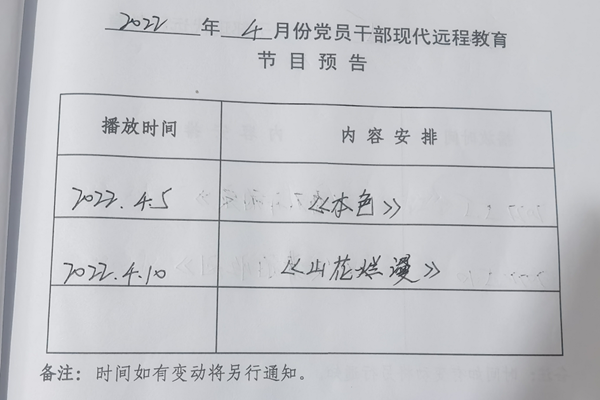 2022 年 4 月份党员干部现代远程教育
节目预告
播放时间 内容安排
2022.4.5 《本色》
2022.4.10 《山花烂漫》
备注：时间如有变动将另行通知。